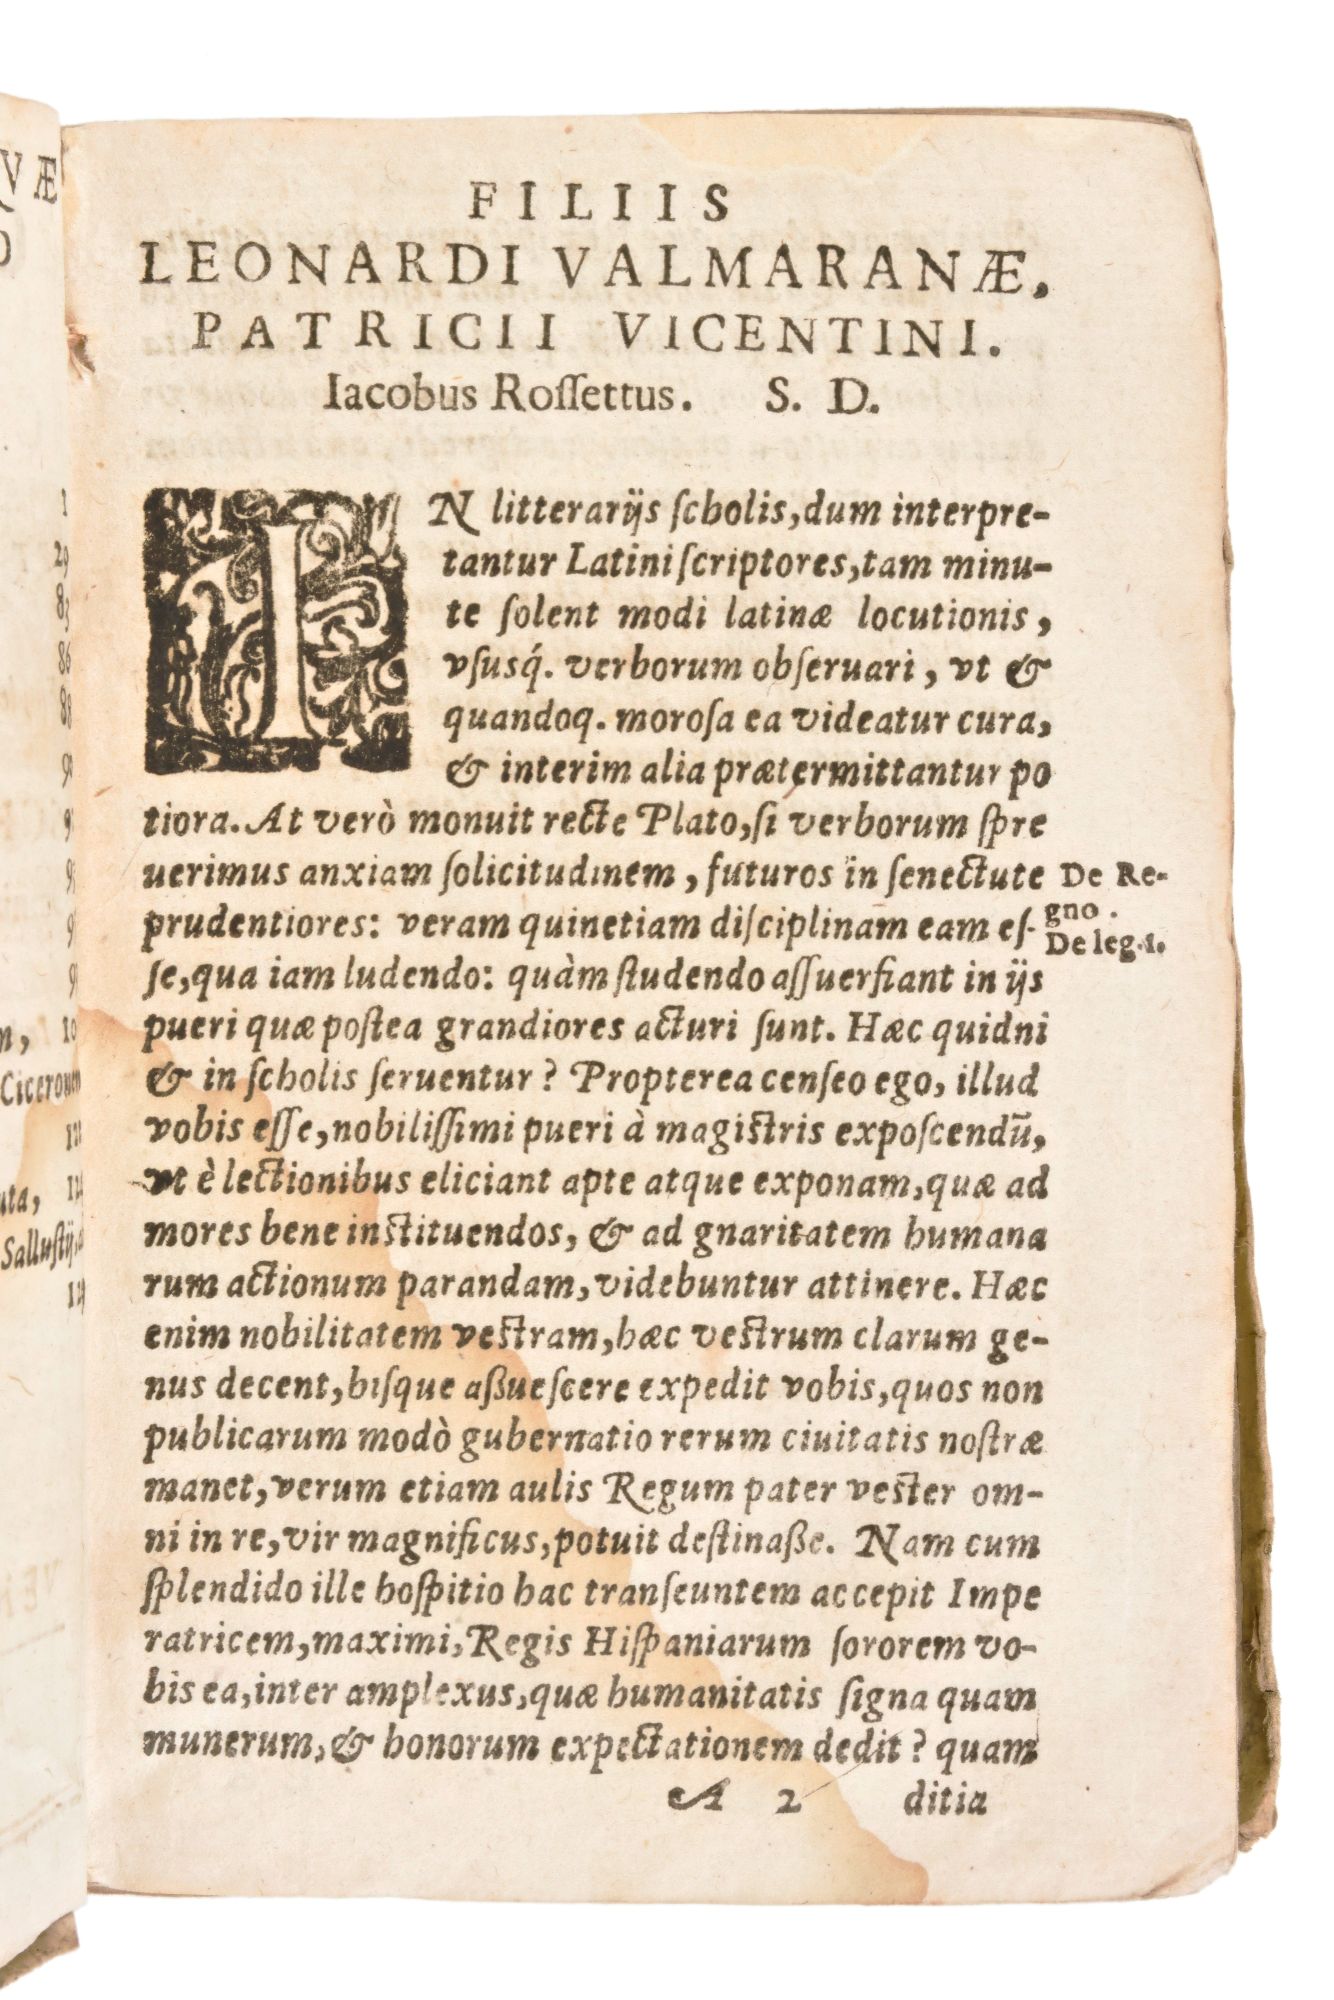 VÆ
1
29
83
86
88
m,
Ciceronem
uta,
Sallustij,
FILIIS
LEONARDI VALMARANÆ,
PATRICII VICENTINI.
Iacobus Roſſettus. S. D.
IN litterarijs ſcholis, dum interpre-
tantur Latini ſcriptores, tam minu-
te ſolent modi latinæ locutionis,
vſusq́. verborum obſeruari, vt &
quandoq. moroſa ea videatur cura,
& interim alia prætermittantur po
tiora. At verò monuit recte Plato, ſi verborum ſpre
uerimus anxiam ſolicitudinem, futuros in ſenectute
De Re-
prudentiores: veram quinetiam diſciplinam eam eſ-
gno.
De leg. 1.
ſe, qua iam ludendo: quàm ſtudendo aſſuerfiant in ijs
pueri quæ poſtea grandiores acturi ſunt. Hæc quidni
& in ſcholis ſeruentur? Propterea cenſeo ego, illud
vobis eſſe, nobiliſſimi pueri à magiſtris expoſcendū,
vt è lectionibus eliciant apte atque exponam, quæ ad
mores bene inſtituendos, & ad gnaritatem humana
rum actionum parandam, videbuntur attinere. Hæc
enim nobilitatem veſtram, hæc veſtrum clarum ge-
nus decent, hiſque aßueſcere expedit vobis, quos non
publicarum modò gubernatio rerum ciuitatis noſtræ
manet, verum etiam aulis Regum pater veſter om-
ni in re, vir magnificus, potuit deſtinaße. Nam cum
ſplendido ille hoſpitio hac tranſeuntem accepit Impe
ratricem, maximi, Regis Hiſpaniarum ſororem vo-
bis ea, inter amplexus, quæ humanitatis ſigna quam
munerum, & honorum expectationem dedit? quam
A 2 ditia